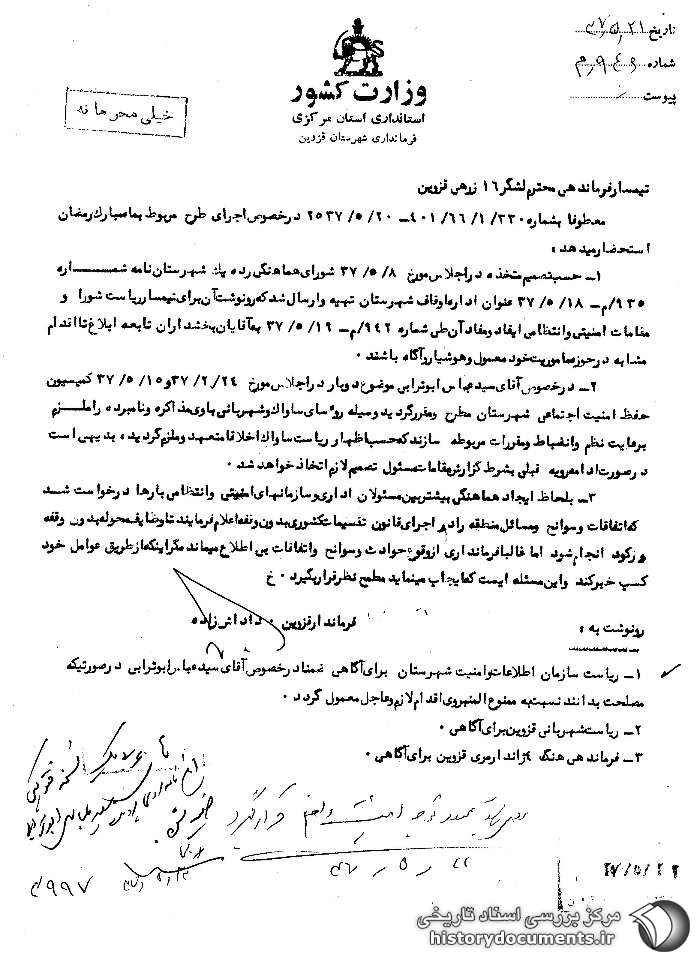 تاریخ ۳۷/۵/۲۱
شماره ۹۴۶/م
پیوست
وزارت کشور
استانداری استان مرکزی
فرمانداری شهرستان قزوین
خیلی محرمانه
تیمسار فرماندهی محترم لشگر ۱۶ زرهی قزوین
معطوفا بشماره ۳۳۰/۱/۶۶/۴۰۱ – ۲۰/۵/۲۵۳۷ در خصوص اجرای طرح مربوط بماه مبارک رمضان
استحضار میدهد :
۱– حسب تصمیم متخذه در اجلاس مورخ ۸/۵/۳۷ شورای هماهنگی رده یک شهرستان نامه شماره
۹۳۵/م – ۱۸/۵/۳۷ عنوان اداره اوقاف شهرستان تهیه و ارسال شد که رونوشت آن برای تیمسار ریاست شورا و
مقامات امنیتی و انتظامی ایفاد و مفاد آن طی شماره ۹۴۲/م – ۱۹/۵/۳۷ به آقایان بخشداران تابعه ابلاغ تا اقدام
مشابه در حوزه ماموریت خود معمول و هوشیار و آگاه باشند .
۲– در خصوص آقای سید عباس ابوترابی موضوع دوبار در اجلاس مورخ ۲۴/۲/۳۷ و ۱۵/۵/۳۷ کمیسیون
حفظ امنیت اجتماعی شهرستان مطرح و مقرر گردید وسیله روسای ساواک و شهربانی باوی مذاکره و نامبرده را ملزم
برعایت نظم و انضباط و مقررات مربوطه سازند که حسب اظهار ریاست ساواک اخلاقا متعهد و ملزم گردیده بدیهی است
در صورت ادامه رویه قبلی بشرط گزارش مقامات مسئول تصمیم لازم اتخاذ خواهد شد .
۳– بلحاظ ایجاد هماهنگی بیشتر بین مسئولان اداری و سازمانهای امنیتی و انتظامی بارها درخواست شد
که اتفاقات و سوانح و مسائل منطقه را در اجرای قانون تقسیمات کشوری بدون وقفه اعلام فرمایند تا وظایف محوله بدون وقفه
و رکود انجام شود اما غالبا فرمانداری از وقوع حوادث و سوانح و اتفاقات بی اطلاع میماند مگر اینکه از طریق عوامل خود
کسب خبر کند و این مسئله ایست که ایجاب مینماید مطمح نظر قرار بگیرد . خ
فرماندار قزوین . داداش زاده
رونوشت به :
۱– ریاست سازمان اطلاعات و امنیت شهرستان برای آگاهی ضمنا در خصوص آقای سید عباس ابوترابی در صورتیکه
مصلحت بدانند نسبت به ممنوع المنبروی اقدام لازم و عاجل معمول گردد .
۲– ریاست شهربانی قزوین برای آگاهی .
۳– فرماندهی هنگ ژاندارمری قزوین برای آگاهی .
۳۹۹۷
۲۲/۵/۳۷
مرکز بررسی اسناد تاریخی
historydocuments.ir